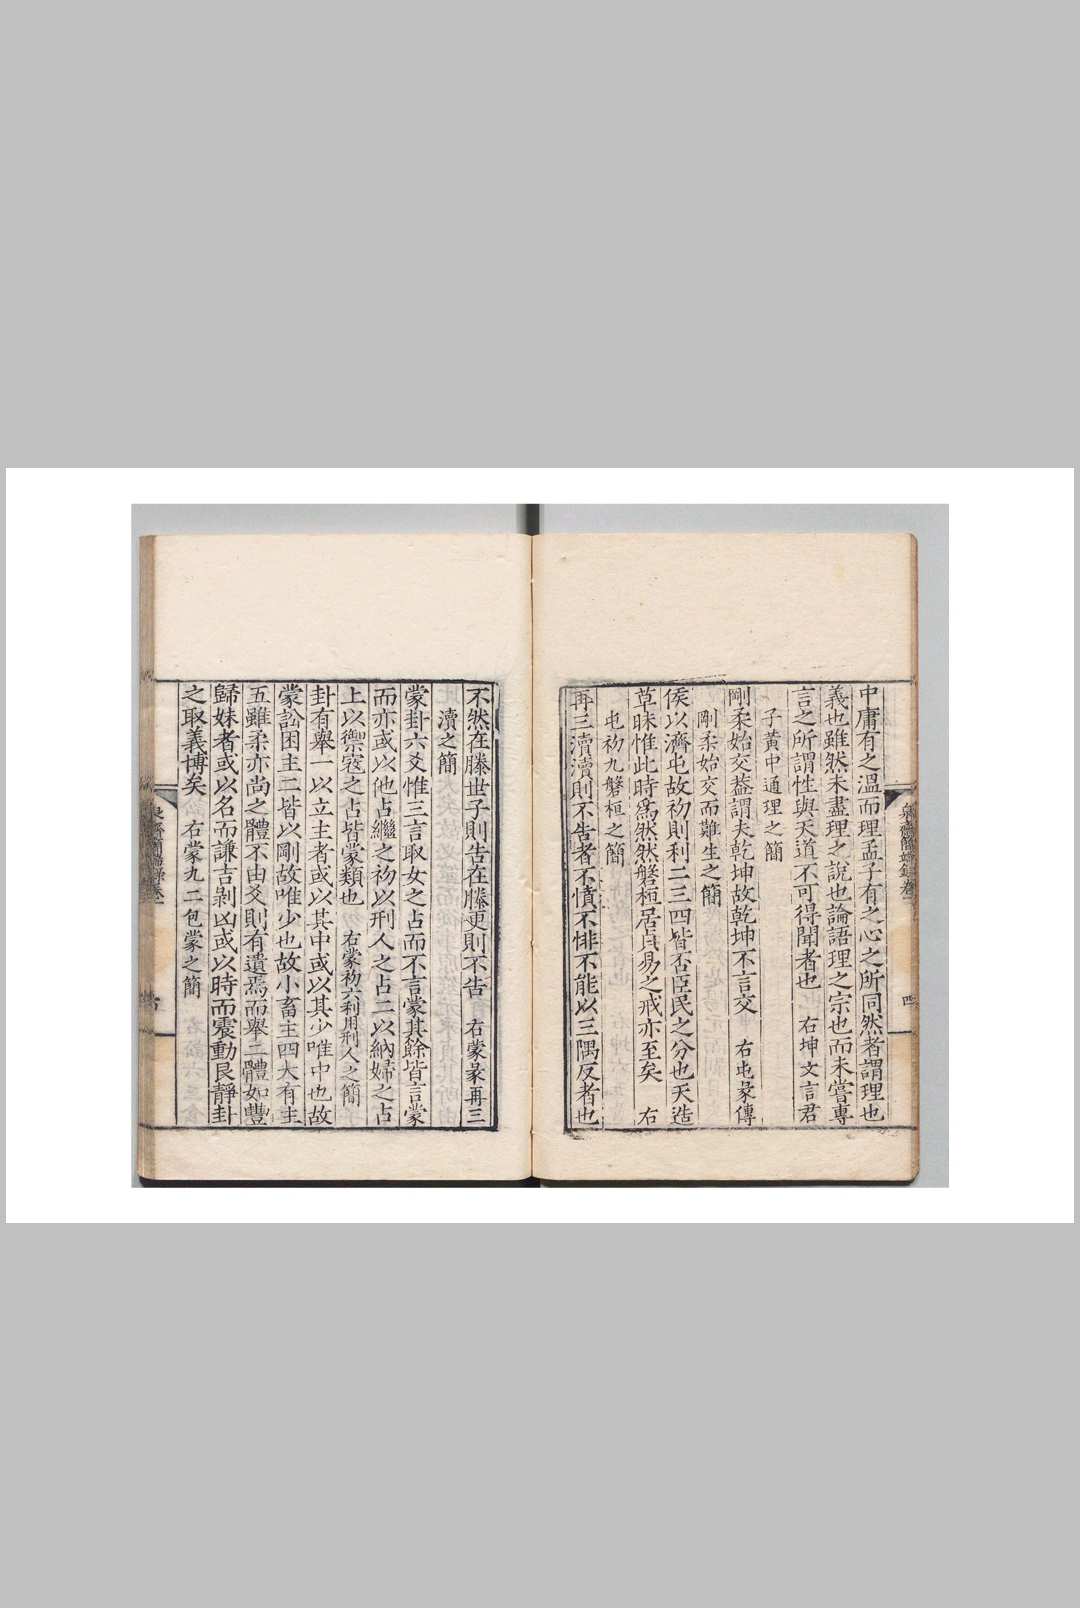 中庸有之溫而理孟子有之心之所同然者謂理也
義也雖然未盡理之說也論語理之宗也而未嘗專
言之所謂性與天道不可得聞者也　右坤文言君
子黃中通理之簡
剛柔始交蓋謂夫乾坤故乾坤不言交　右屯彖傳
剛柔始交而難生之簡
侯以濟屯故初則利二三四皆否臣民之分也天造
草昧惟此時爲然然磐桓居貞易之戒亦至矣　右
屯初九磐桓之簡
再三瀆瀆則不告者不憤不悱不能以三隅反者也
不然在滕世子則告在滕更則不告　右蒙彖再三
瀆之簡
蒙卦六爻惟三言取女之占而不言蒙其餘皆言蒙
而亦或以他占繼之初以刑人之占二以納婦之占
上以禦寇之占皆蒙類也　右蒙初六利用刑人之簡
卦有舉一以立主者或以其中或以其少唯中也故
蒙訟困主二皆以剛故唯少也故小畜主四大有主
五雖柔亦尚之體不由爻則有遺焉而舉二體如豐
歸妹者或以名而謙吉剝凶或以時而震動艮靜卦
之取義博矣　右蒙九二包蒙之簡
簡端錄卷一
四